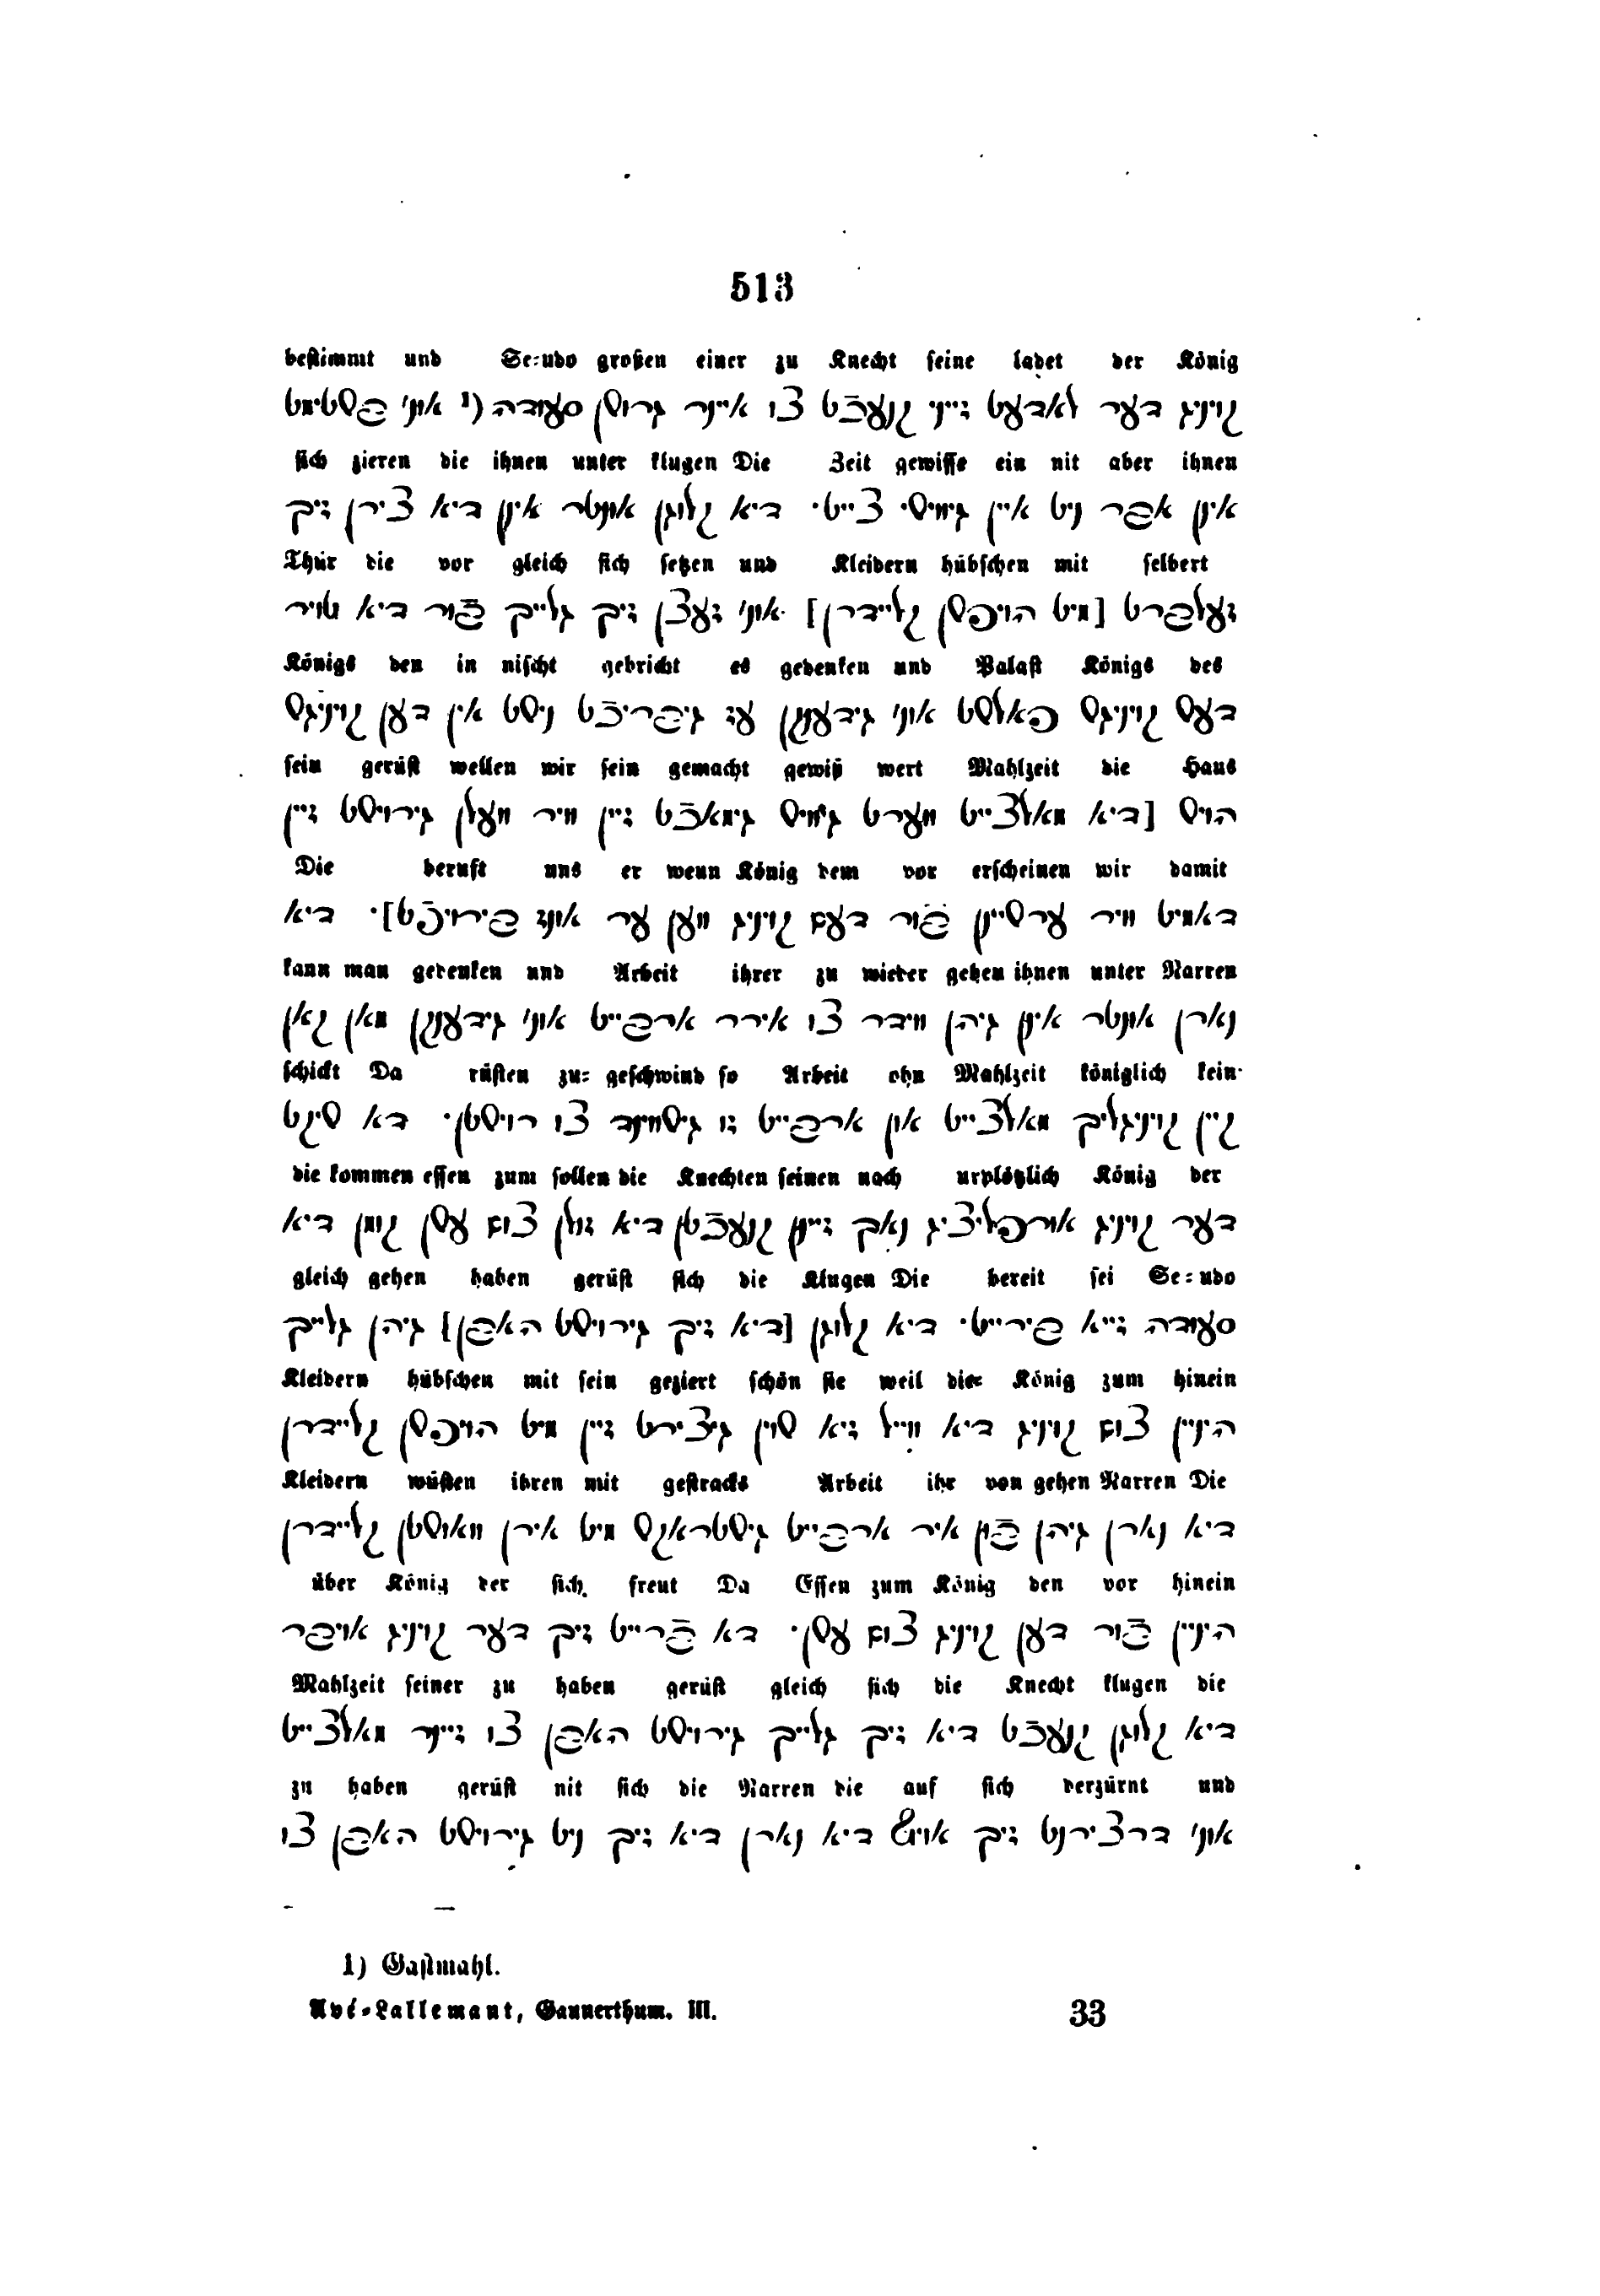 513
bestimmt und Se=udo großen einer zu Knecht seine ladet der König
קיניג דער לאדעט זייני קנעכֿט צו איינר גרוסן סעודה (¹ אוני פשטימט
sich zieren die ihnen unter klugen Die Zeit gewisse ein nit aber ihnen
אינן אבר ניט איין גיוויסי צייט. דיא קלוגן אונטר אינן דיא צירן זיך
Thür die vor gleich sich setzen und Kleidern hübschen mit selbert
זעלברט [מיט היפשן קליידרן] אוני זעצן זיך גלייך פֿור דיא טויר
Königs den in nischt gebricht es gedenken und Palast Königs des
דעס קיניגס פאלסט אוני גידענקן עז גיבריכֿט נישט אין דען קיניגס
sein gerüst wellen wir sein gemacht gewiß wert Mahlzeit die Haus
הויס [דיא מאלצייט ווערט גוויס גימאכֿט זיין וויר וועלן גירוישט זיין
Die beruft uns er wenn König dem vor erscheinen wir damit
דאמיט וויר ערשיינן פֿור דעם קיניג ווען ער אונז בירויפֿט]. דיא
kann man gedenken und Arbeit ihrer zu wieder gehen ihnen unter Narren
נארן אונטר אינן גיהן ווידר צו אירר ארבייט אוני גידענקן מאן קאן
schickt Da rüsten zu= geschwind so Arbeit ohn Mahlzeit königlich kein
קיין קיניגליך מאלצייט אן ארבייט זו גישווינד צו רוישטן. דא שיקט
die kommen essen zum sollen die Knechten seinen nach urplötzlich König der
דער קיניג אורפליציג נאך זיינן קנעכֿטן דיא זולן צום עסן קומן דיא
gleich gehen haben gerüst sich die Klugen Die bereit sei Se=udo
סעודה זייא בירייט. דיא קלוגן [דיא זיך גירוישט האבן] גיהן גלייך
Kleidern hübschen mit sein geziert schön sie weil die König zum hinein
היניין צום קיניג דיא ווייל זיא שוין גיצירט זיין מיט היפשן קליידרן
Kleidern wüsten ihren mit gestracks Arbeit ihr von gehen Narren Die
דיא נארן גיהן פֿון איר ארבייט גישטראקס מיט אירן וואושטן קליידרן
über König der sich freut Da Essen zum König den vor hinein
היניין פֿור דען קיניג צום עסן. דא פֿרייט זיך דער קיניג אויבר
Mahlzeit seiner zu haben gerüst gleich sich die Knecht klugen die
דיא קלוגן קנעכֿט דיא זיך גלייך גירוישט האבן צו זיינר מאלצייט
zu haben gerüst nit sich die Narren die auf sich verzürnt und
אוני דרצירנט זיך אויף דיא נארן דיא זיך ניט גירוישט האבן צו
1) Gastmahl.
Avé=Lallemant, Gaunerthum. III. 33